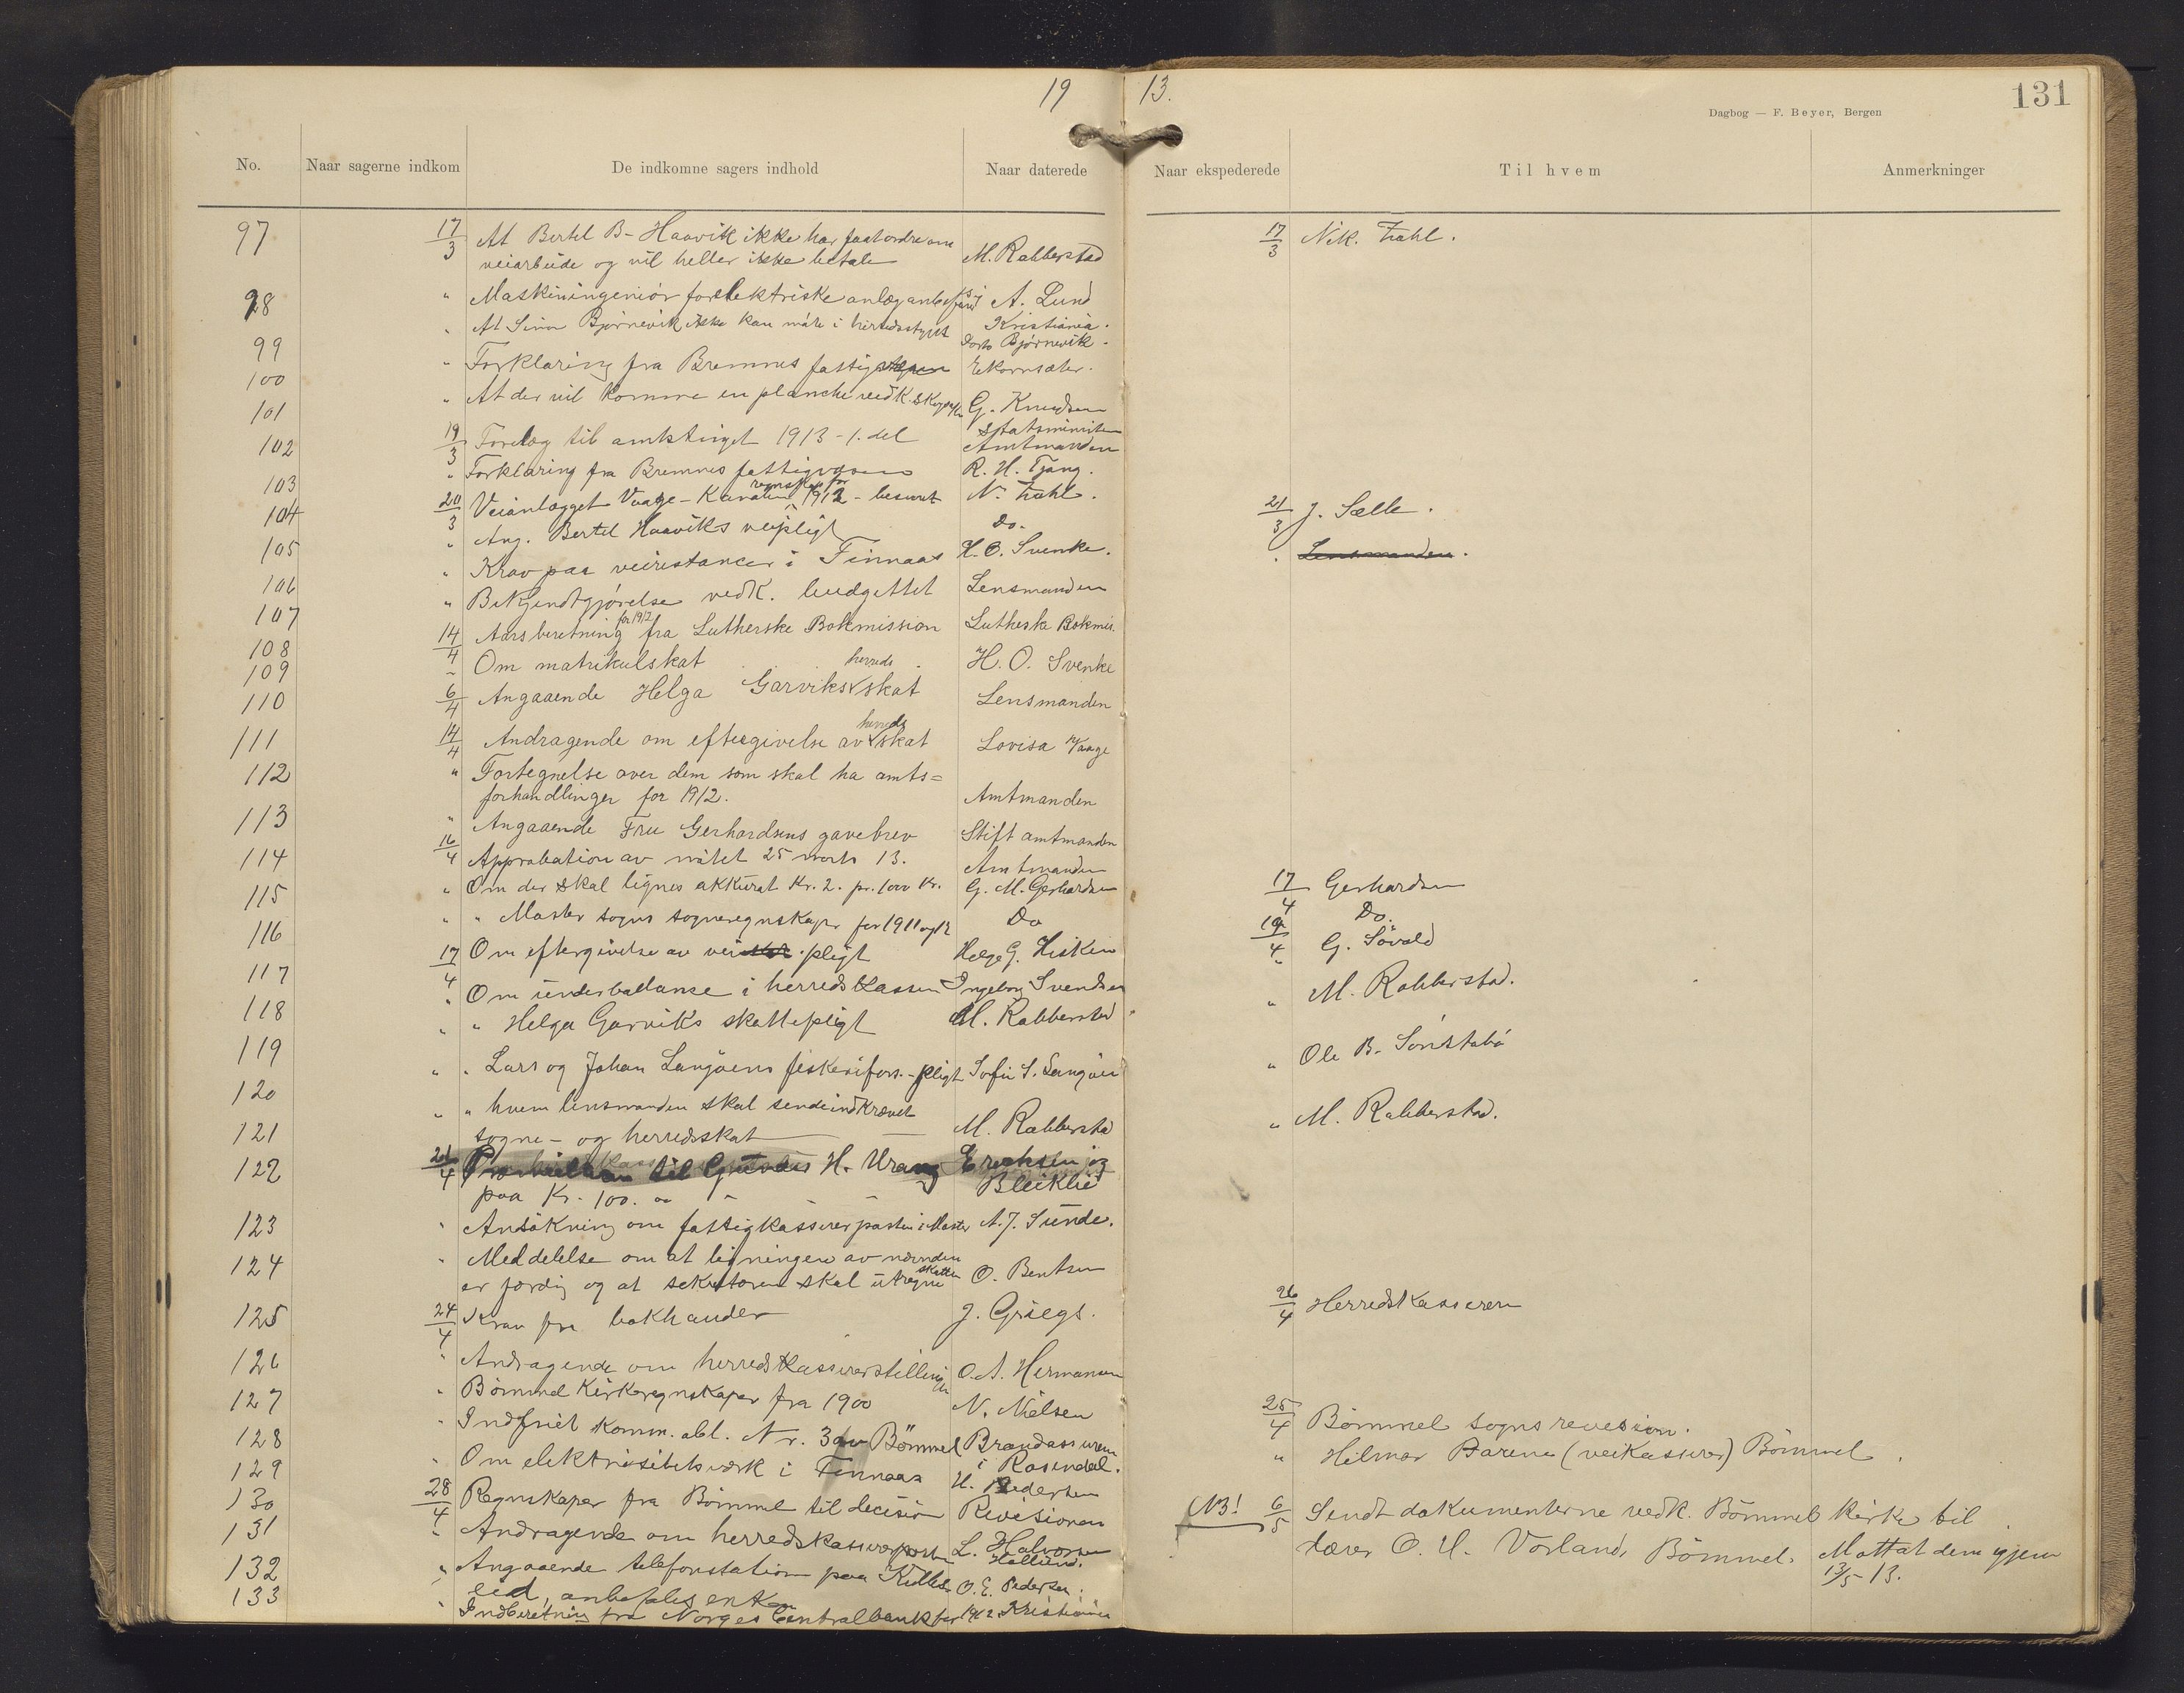 19 13.
131
Dagbog — F. Beyer, Bergen
No. Naar sagerne indkom De indkomne sagers indhold Naar daterede Naar ekspederede Til hvem Anmerkninger
97 17/3 At Bertel B- Haavik ikke har faat ordre om 17/3 Nik. Zahl.
veiarbeide og vil heller ikke betale M. Rabberstad
98 " Maskiningeniør for elektriske anlæg A. Lund
Kristiania.
99 " At Simon Bjørnevik ikke kan møte i herredsstyret Bjørnevik.
100 " Forklaring fra Bremnes Ekornsæter.
101 " At der vil komme en planche vedk. G. Knudsen
Statsminister
102 19/3 Forelæg til amtstinget 1913 - 1. del Amtmanden
103 " Forklaring fra Bremnes fattigvæsen R. H. Tjang.
regnskap for
104 20/3 Veianlægget Vaage - Kanalen 1912 - besvaret N. Zahl. 21/3 J. Sælle.
105 " Ang. Bertel Haaviks veipligt Do. " Lensmanden.
106 " Krav paa veirestancer i Finnaas H. O. Svenke.
107 " Bekjendtgjørelse vedk. budgettet Lensmanden
for 1912
108 14/4 Aarsberetning fra Lutherske Bokmission Lutherske Bokmis.
109 " Om matrikulskat H. O. Svenke
herreds
110 6/4 Angaaende Helga Garviks skat Lensmanden
herreds
111 14/4 Andragende om eftergivelse av skat Lovisa Vaage
112 " Fortegnelse over dem som skal ha amts=
forhandlinger for 1912. Amtmanden
113 " Angaaende Fru Gerhardsens gavebrev Stiftamtmanden
114 16/4 Approbation av møtet 25 marts 13. Amtmanden
115 " Om der skal lignes akkurat Kr. 2. pr. 1000 Kr. G. M. Gerhardsen 17/4 Gerhardsen
116 " " Møster sogns sogneregnskaper for 1911 og 12 Do Do.
117 17/4 Om eftergivelse av vei pligt Helge G. Hisken 19/4 G. Søvold
118 " Om underballanse i herredskassen Ingeborg Svendsen " M. Rabberstad.
119 " " Helga Garviks skattepligt M. Rabberstad
120 " " Lars og Johan Langøens fiskerifors.-pligt Sofie S. Langøen " Ole B. Sønstabø
121 " " hvem lensmanden skal sende indkrævet
sogne- og herredsskat M. Rabberstad " M. Rabberstad.
122 21/4 til H. Urang Erechsen og
paa Kr. 100. 00 Bleiklie
123 " Ansøkning om fattigkassererposten i Møster A. J. Sunde.
124 " Meddelelse om at ligningen av nævnden
er færdig og at sekretæren skal utregne skatten O. Bentsen
125 24/4 Krav fra bokhander J. Griegs. 26/4 Herredskassereren
126 " Andragende om herredskassererstillingen O. A. Hermansen
127 " Bømmel Kirkeregnskaper fra 1900 N. Nielsen 25/4 Bømmel sogns revesion.
128 " Indfriet Komm. obl. Nr. 3 av Bømmel Brandassuran " Hilmar Barene (veikasserer) Bømmel.
i Rosendal.
129 " Om elektrisitetsverk i Finnaas H. Pedersen
130 28/4 Regnskaper fra Bømmel til decision Revisionen NB! 6/5 Sendt dokumenterne vedk. Bømmel kirke til
131 " Andragende om herredskassererposten L. Halvorsen lærer O. H. Vorland, Bømmel. Mottat dem igjen
Hallund. 13/5 - 13.
132 " Angaaende telefonstation paa O. E. Pedersen.
eid, anbefales enkan
133 " Indberetning fra Norges Centralbank for 1912 Kristiania